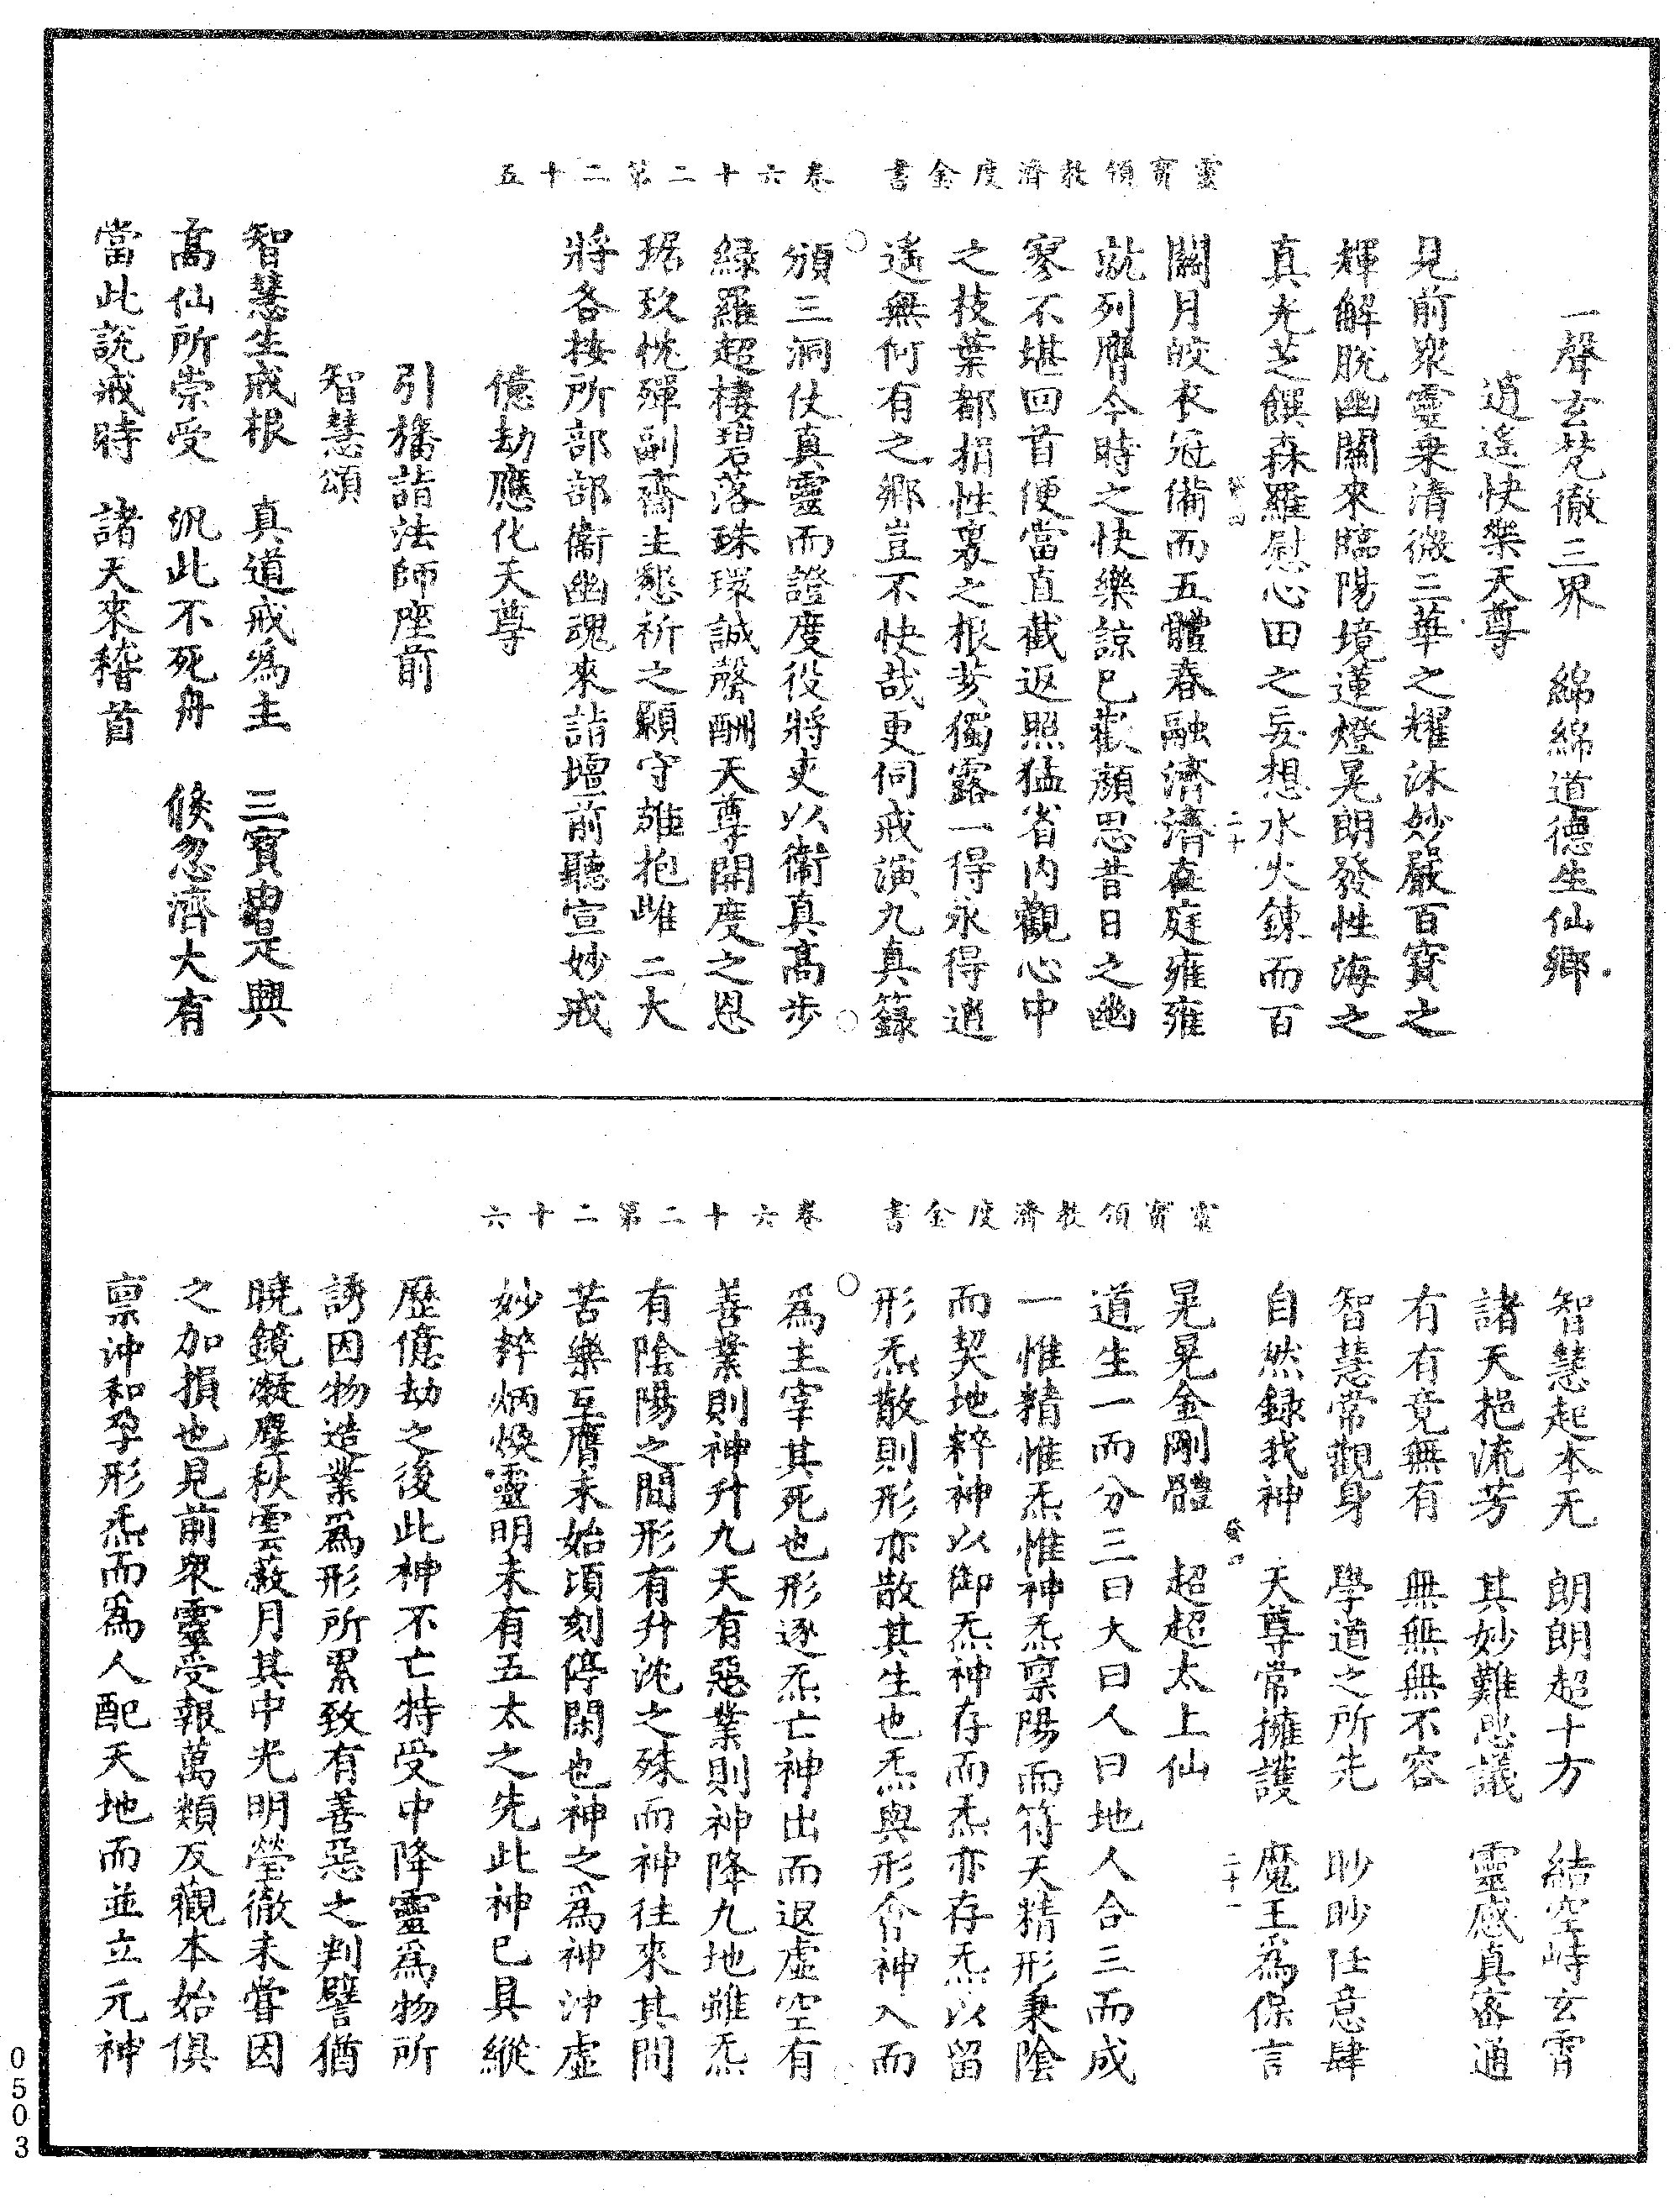 靈寶領教濟度金書　卷六十二第二十五
一聲玄梵徹三界　綿綿道德生仙鄉
逍遙快樂天尊
見前衆靈乗清微三華之耀沐妙嚴百寳之
輝解脫幽關來臨陽境蓮燈晃朗發性海之
真光芝饌森羅慰心田之妄想水火鍊而百
關月皎衣冠備而五體春融濟濟在庭雍雍
二十
就列膺今時之快樂諒已歡顔思昔日之幽
寥不堪回首便當直截返照猛省内觀心中
之枝葉都捐性裏之根荄獨露一得永得逍
遙無何有之鄉豈不快哉更伺戒演九真籙
頒三洞仗真靈而證度役將吏以衛真高步
緑羅超棲碧落珠環誠罄酬天尊開度之恩
琚玖忱殫副齋主懇祈之願守雄抱雌二大
將各按所部部衛幽魂來詣壇前聽宣妙戒
億劫應化天尊
引旛詣法師座前
智慧頌
智慧生戒根　真道戒爲主　三寳由是興
高仙所崇受　汎此不死舟　倐忽濟大有
當此說戒時　諸天來稽首
靈寶領教濟度金書　卷六十二第二十六
智慧起本无　朗朗超十方　結空峙玄霄
諸天挹流芳　其妙難思議　靈感真宻通
有有竟無有　無無無不容
智慧常觀身　學道之所先　眇眇任意肆
自然録我神　天尊常擁護　魔王爲保言
晃晃金剛體　超超太上仙
二十一
道生一而分三曰大曰人曰地人合三而成
一惟精惟炁惟神炁禀陽而符天精形秉陰
而契地粹神以御炁神存而炁亦存炁以留
形炁散則形亦散其生也炁與形合神入而
爲主宰其死也形逐炁亡神出而返虚空有
善業則神升九天有惡業則神降九地雖炁
有陰陽之間形有升沈之殊而神往來其間
苦樂互膺未始頃刻停閑也神之爲神沖虚
妙粹炳煥靈明未有五太之先此神已具縱
歷億劫之後此神不亡特受中降靈爲物所
誘因物造業爲形所累致有善惡之判譬猶
曉鏡凝塵秋雲蔽月其中光明瑩徹未嘗因
之加損也見前衆靈受報萬類反觀本始俱
禀沖和孕形炁而爲人配天地而並立元神
0503